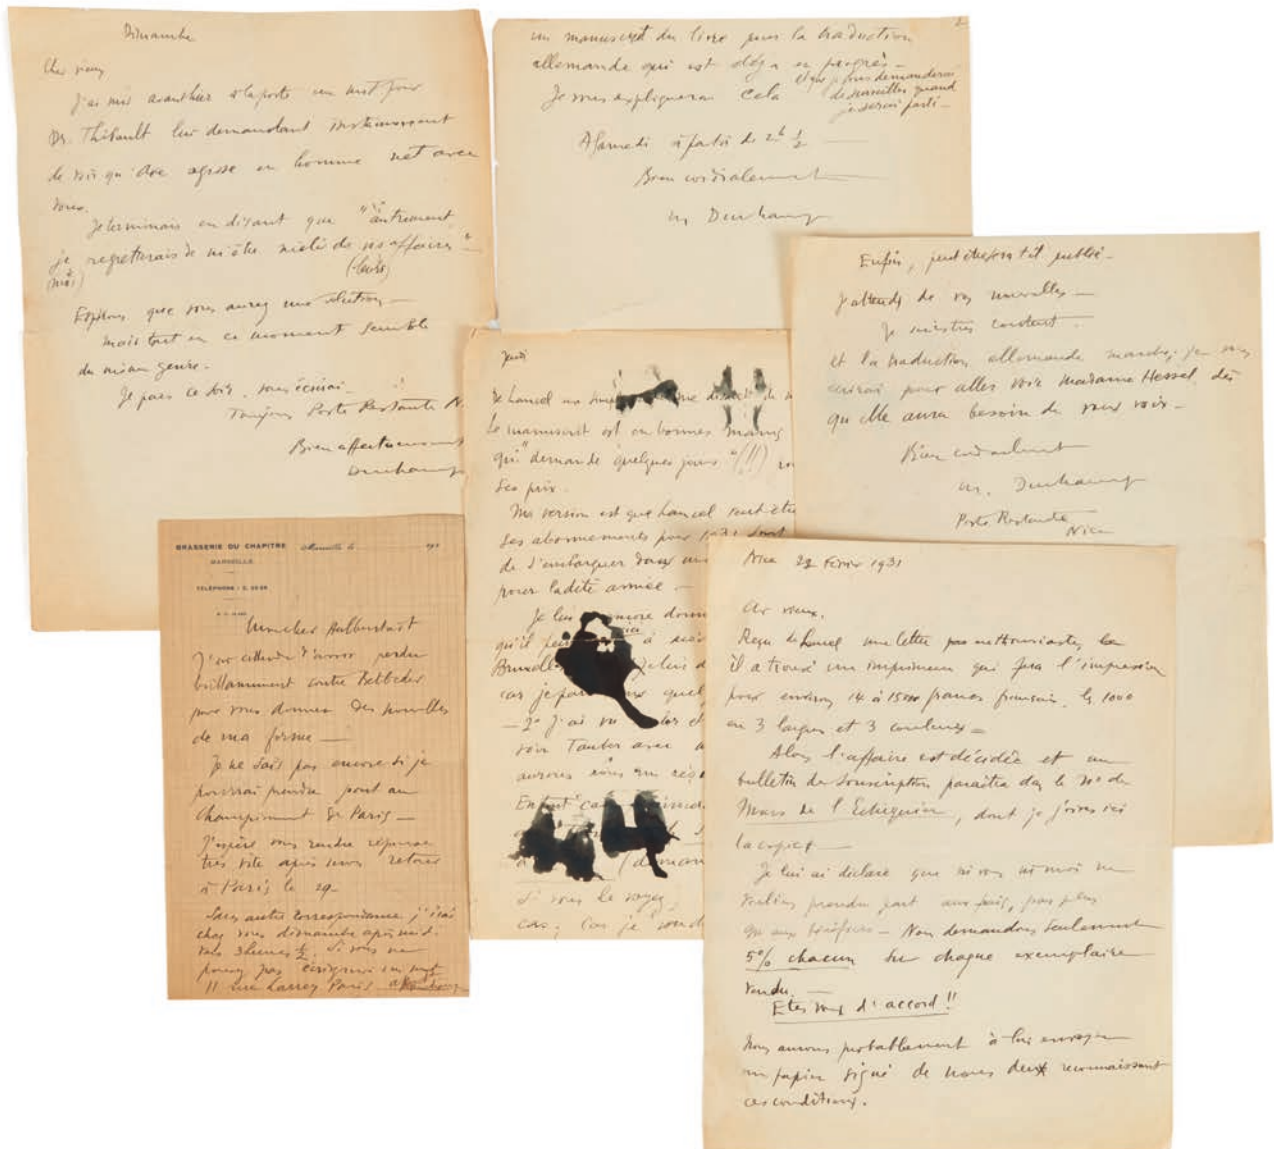 Dimanche
Cher vieux,
J'ai mis avant hier à la poste un mot pour
Dr. Thibault lui demandant instamment
de voir qu'on agisse en homme net avec
vous.
Je terminais en disant que "autrement
je regretterais de m'être mêlé de vos affaires"
(moi) (leurs)
Espérons que vous aurez une solution
mais tout en ce moment semble
du même genre.
Je pars ce soir, vous écrirai
Toujours Poste Restante N.
Bien affectueusement
Duchamp
2
un manuscrit du livre pour la traduction
allemande qui est déjà en progrès —
Je vous expliquerai cela et que je vous demanderai
de surveiller quand
je serai parti —
A Samedi à partir de 2h ½
Bien cordialement
M Duchamp
Enfin, peut être sera t'il publié —
J'attends de vos nouvelles —
Je suis très content.
et la traduction allemande marche; je vous
écrirai pour aller voir Madame Hessel dès
qu'elle aura besoin de vous voir —
Bien cordialement
M. Duchamp
Poste Restante
Nice
Jeudi
de Lancel un
Le manuscrit est en bonnes mains
qui "demande quelques jours" (!!)
ses prix.
Ma version est que Lancel
ses abonnements pour 1931
de s'embarquer dans
pour ladite année —
Je lui donn
qu'il à
Bruxelles
car je par quel
— 2º J'ai vu
voir Tauber avec
aurons
En tout cas
(deman
Si vous le voyez
cas, car je
BRASSERIE DU CHAPITRE Marseille le 193
MARSEILLE
TELEPHONE : C. 26-28
Mon cher Halberstadt
J'ai attendu d'avoir perdu
brillamment contre Betbeder
pour vous donner des nouvelles
de ma forme —
Je ne sais pas encore si je
pourrai prendre part au
Championnat de Paris —
J'espère vous rendre réponse
très vite après mon retour
à Paris le 29 —
Sans autre correspondance j'irai
chez vous dimanche après midi
vers 3 heures ½. Si vous ne
pouvez pas écrivez moi un mot
11 rue Larrey Paris Duchamp
Nice 22 Février 1931
Cher vieux,
Reçu de Lancel une lettre pas enthousiaste,
il a trouvé un imprimeur qui fera l'impression
pour environ 14 à 15000 francs français les 1000
en 3 langues et 3 couleurs —
Alors l'affaire est décidée et un
bulletin de souscription paraîtra dans le No de
Mars de l'Echiquier, dont je joins ici
la copie —
Je lui ai déclaré que ni vous ni moi ne
voulions prendre part aux frais, pas plus
qu'aux bénéfices — Nous demandons seulement
5% chacun sur chaque exemplaire
vendu. —
Etes vous d'accord!!
Nous aurons probablement à lui envoyer
un papier signé de nous deux reconnaissant
ces conditions.